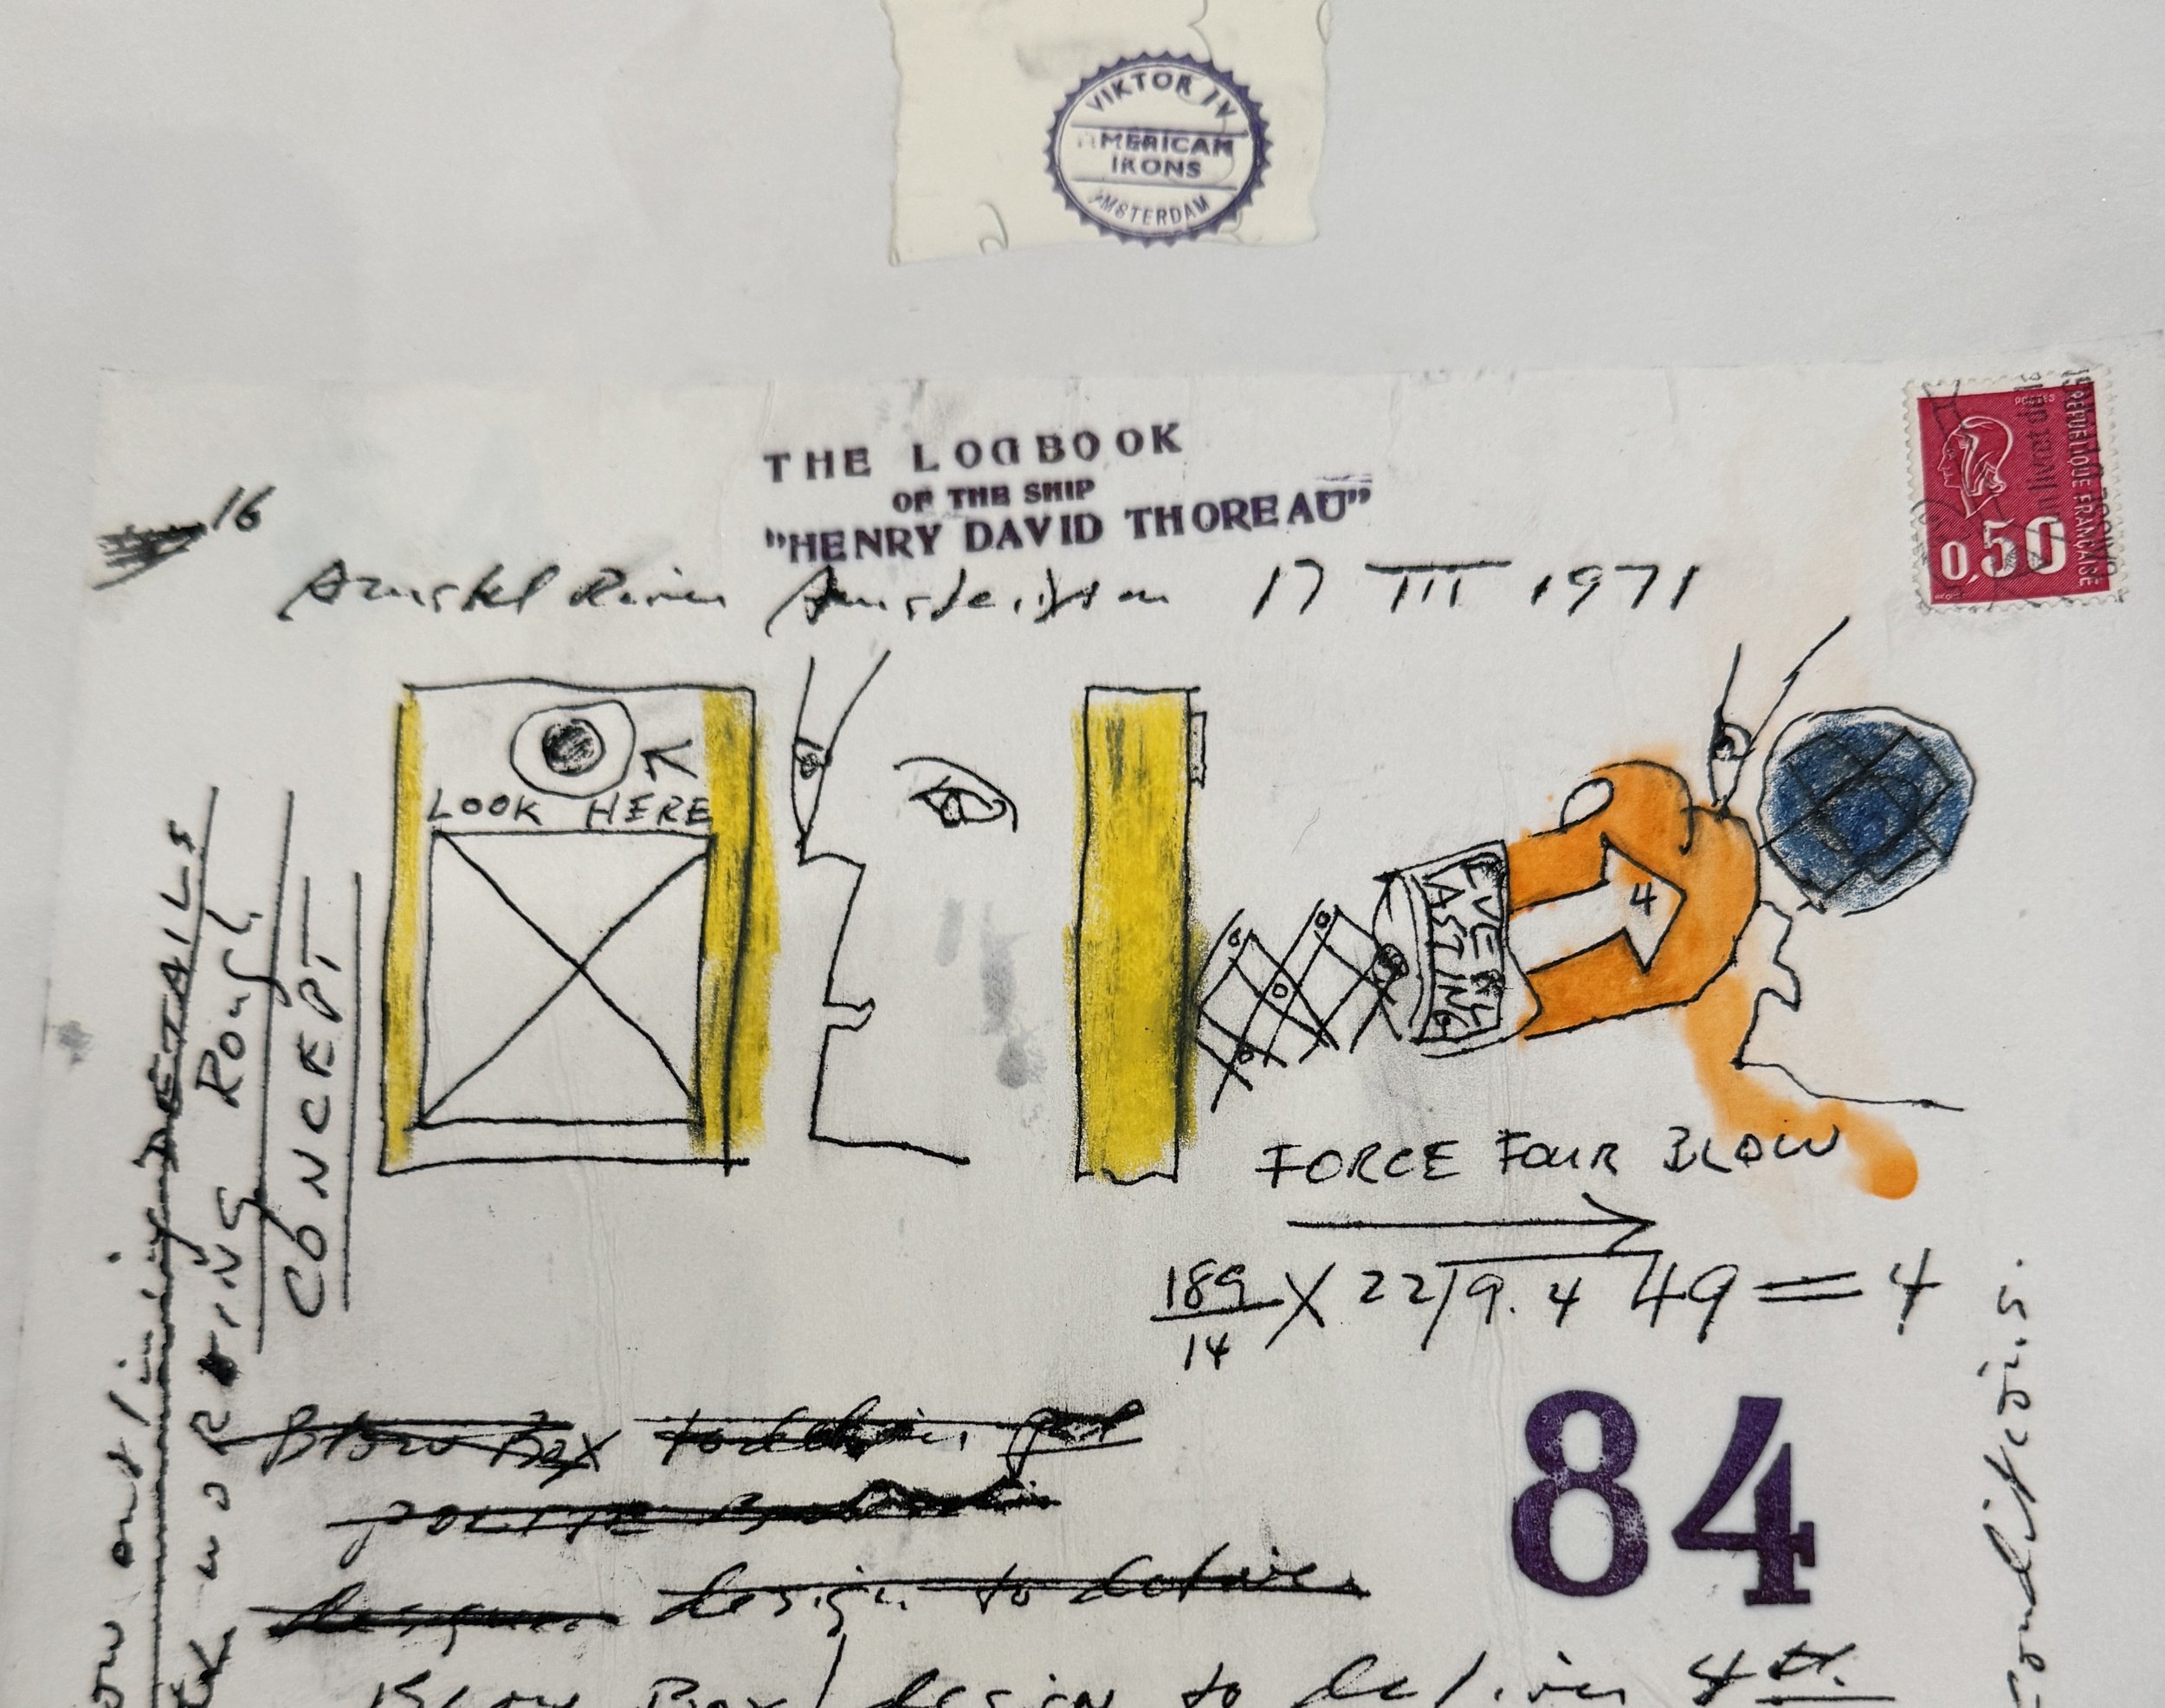 VIKTOR IV
AMERICAN
IRONS
AMSTERDAM
THE LOGBOOK
OF THE SHIP
"HENRY DAVID THOREAU"
16
Amstel River Amsterdam 17 III 1971
POSTES
REPUBLIQUE FRANÇAISE
0,50
LOOK HERE
EVER
LASTING
4
FORCE FOUR BLOW
189/14 X 22/9.4 49 = 4
84
Blow Box
POLITE
design to deliver
Blow Box / design to deliver 4th
DETAILS
WORKING Rough
CONCEPT
Conditions.